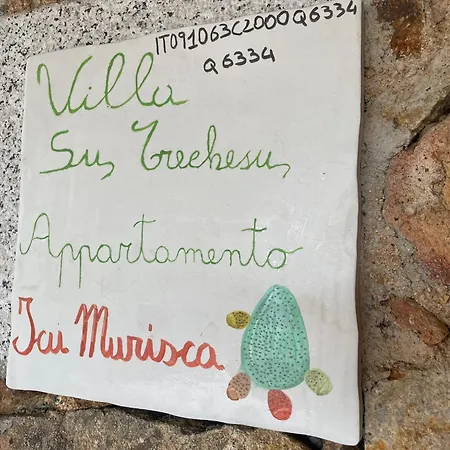 IT091063C2000Q6334
Q6334
Villa
Su Trechesu
Appartamento
Jai Murisca